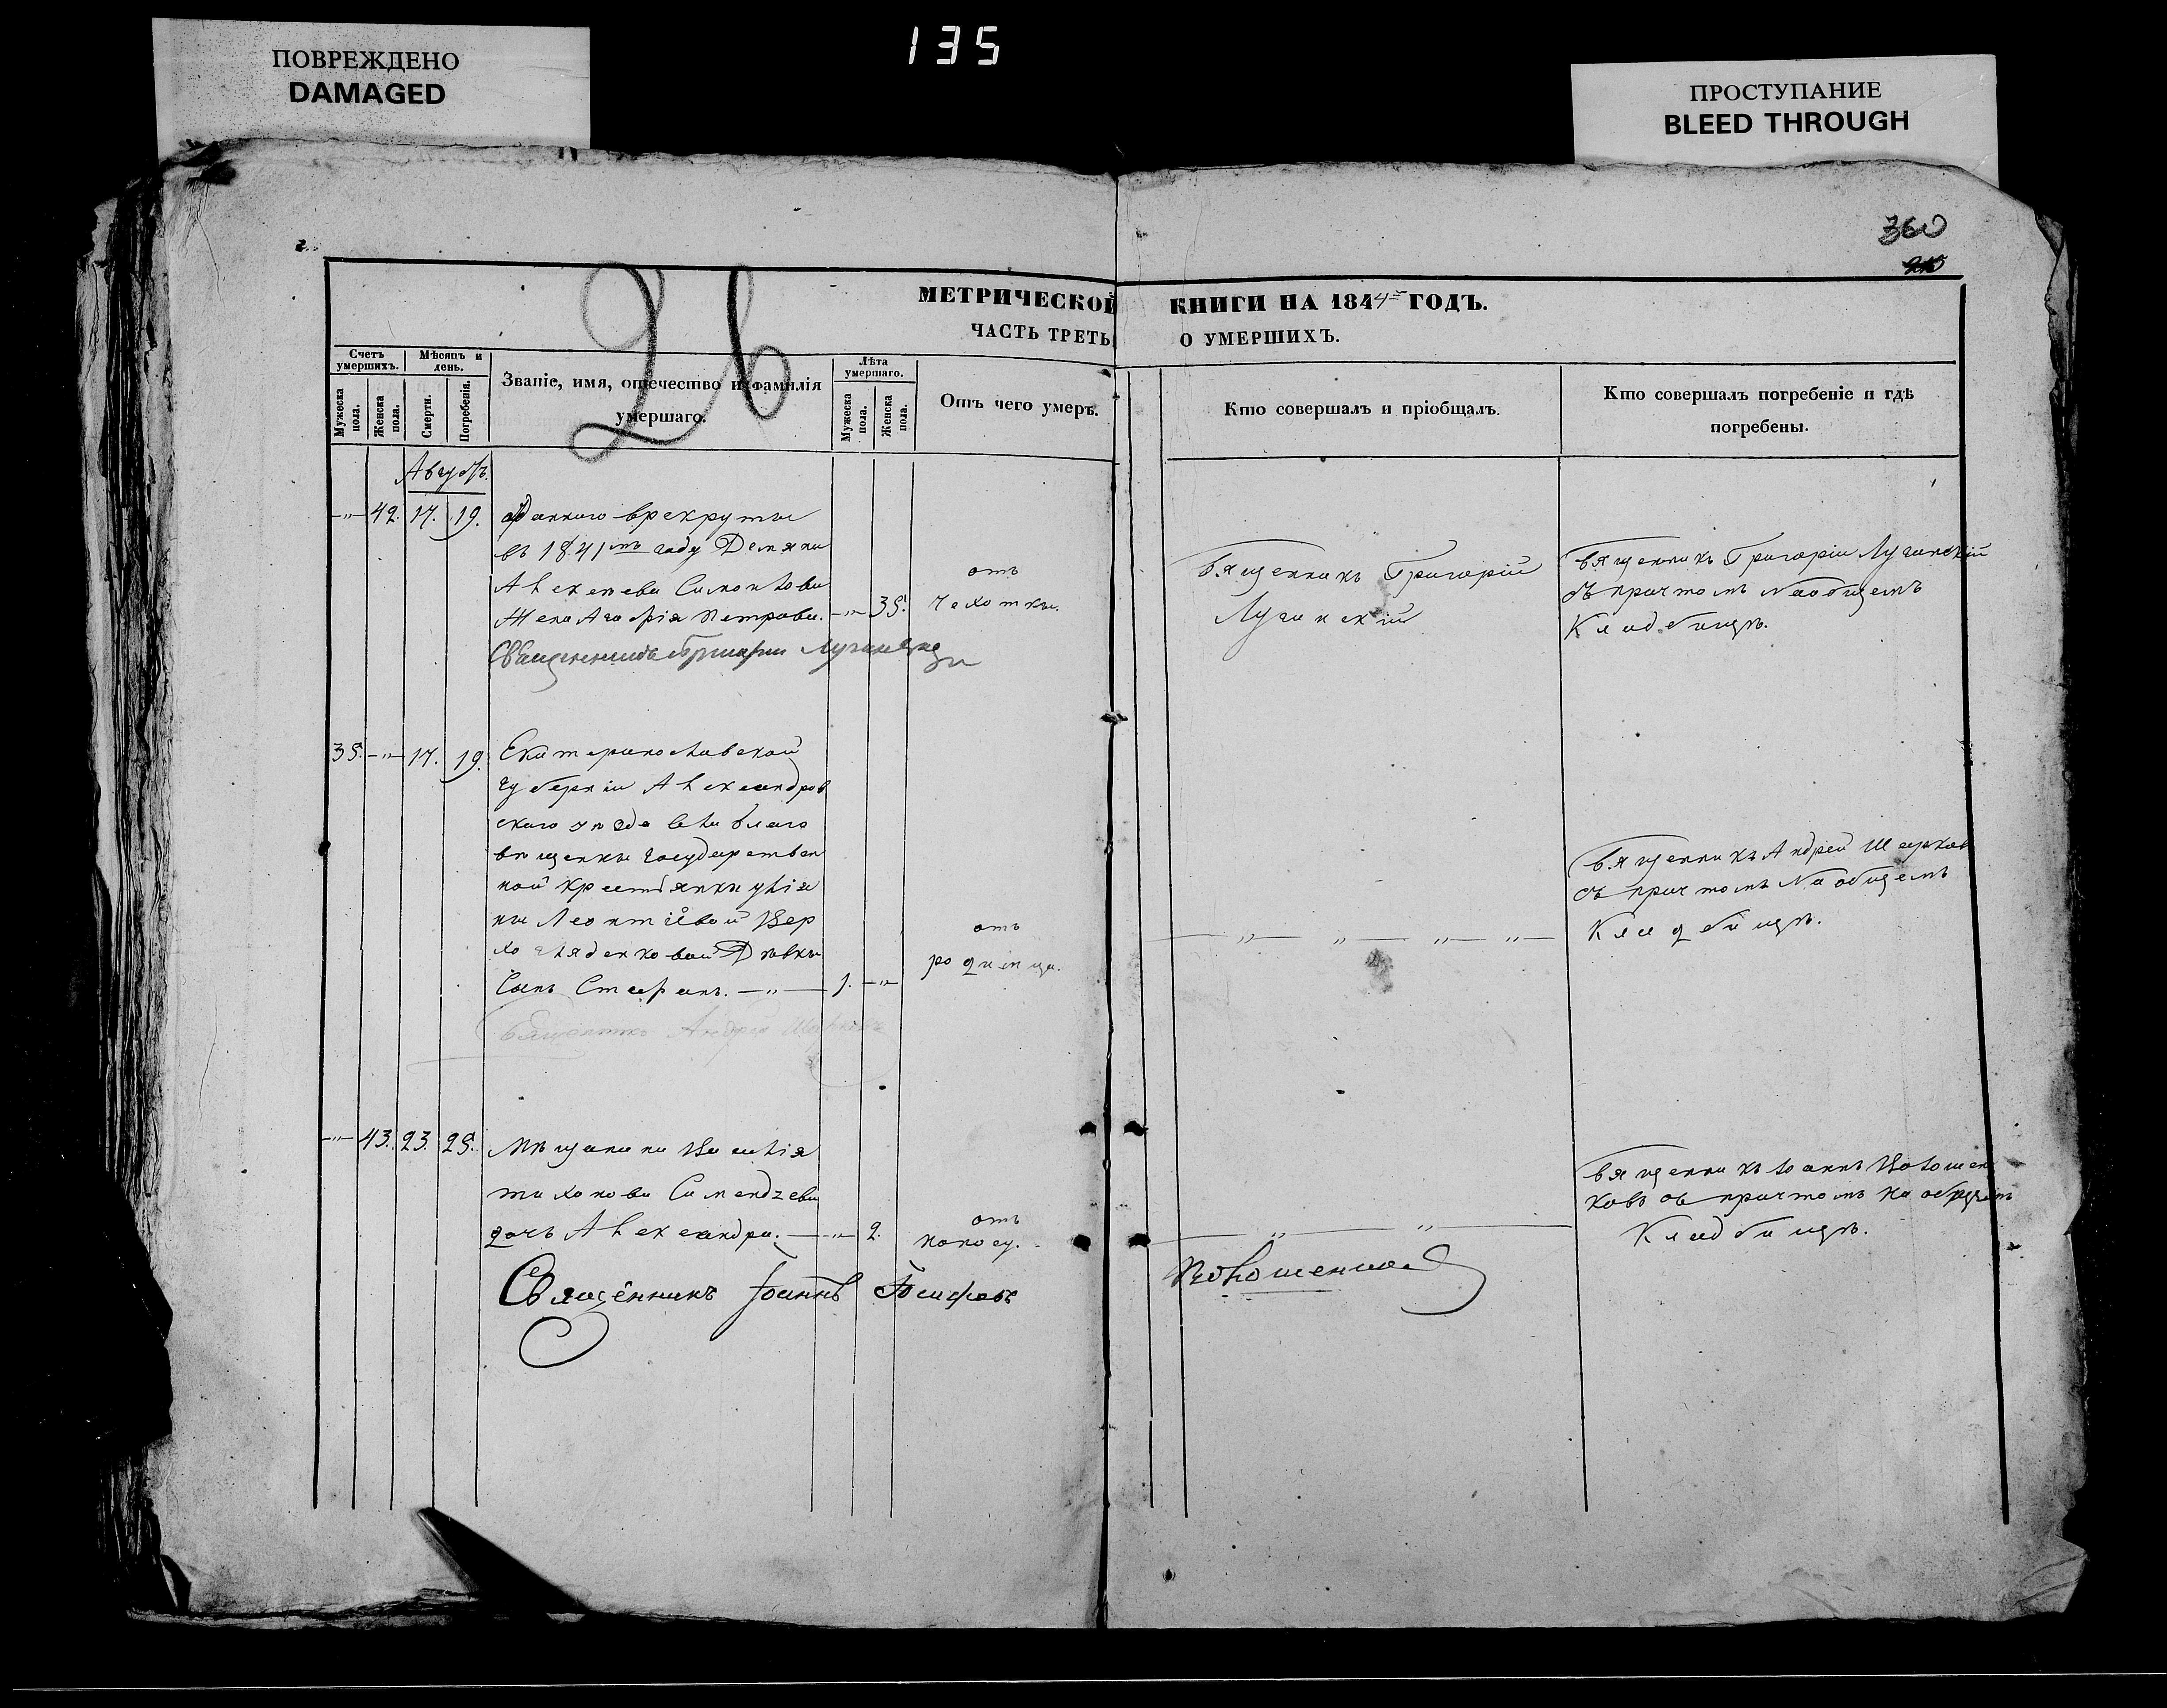 135
ПОВРЕЖДЕНО
DAMAGED
ПРОСТУПАНИЕ
BLEED THROUGH
360
26
МЕТРИЧЕСКОЙ КНИГИ НА 1844 ГОДЪ.
ЧАСТЬ ТРЕТЬ О УМЕРШИХЪ.
Счетъ умершихъ.
Мужеска пола.
Женска пола.
Мѣсяцъ и день.
Смерти.
Погребенія.
Званіе, имя, отечество и фамилія
умершаго.
Лѣта умершаго.
Мужеска пола.
Женска пола.
Отъ чего умеръ.
Кто совершалъ и пріобщалъ.
Кто совершалъ погребеніе и гдѣ
погребены.
Августъ.
-„- 42. 17. 19.
отданного врекруты
въ 1841мъ году Демяна
Алексѣева
жена Петрова. -„- 35.
отъ
чахотки.
Священникъ Григорій
Лучинскій
Священникъ Григорій Лучинскій
съ причтомъ на общемъ
Кладбищѣ.
Священникъ Григорій
35. -„- 17. 19.
Екатеринославской
губерніи Александров
скаго уѣзда села благо
вѣщенки государствен
ной крестьянки улія
ны Леонтіевой Вер
хогляденковой Дѣвки
Сынъ Стефанъ. -„- 1. -„-
отъ
родимца.
-„- „- „- „-
Священникъ Андрей Шарков
съ причтомъ на общемъ
Кладбищѣ.
Священникъ Андрей
-„- 43. 23. 25.
Мѣщанина Василія
тихонова
дочь Александра. -„- 2.
отъ
поносу.
-„- „-
Священникъ Іоаннъ Волошен
ковъ съ причтомъ на общемъ
Кладбищѣ.
Священникъ Іоаннъ Іосифовъ
Волошенков